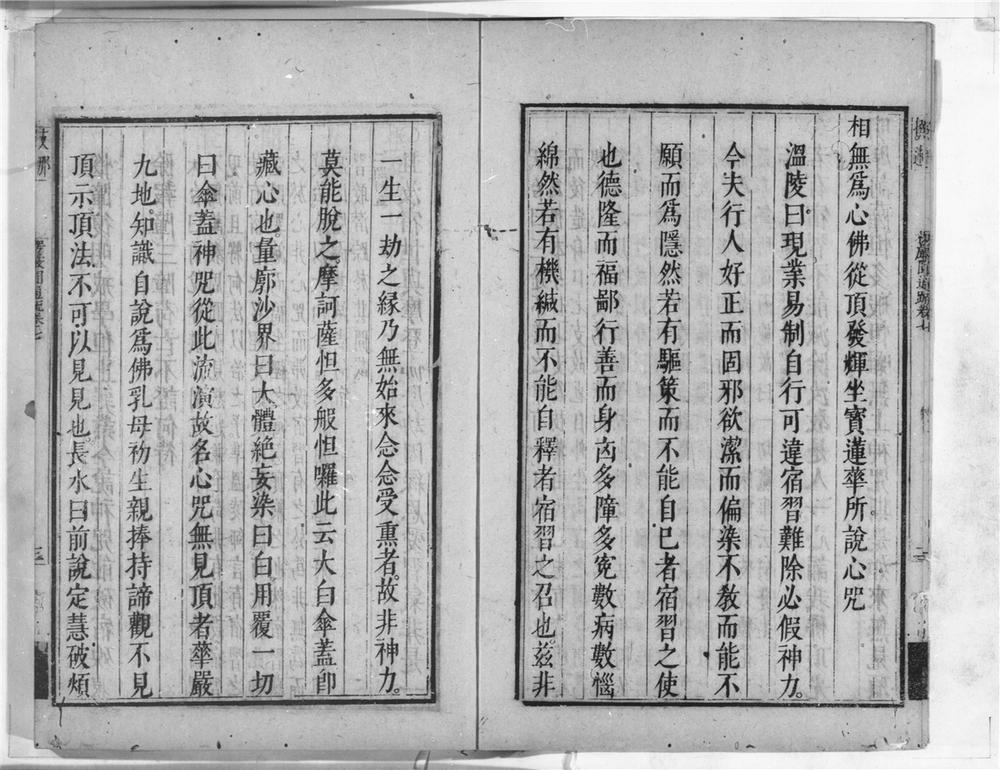 相無爲心佛從頂發輝坐寶蓮華所說心咒
溫陵曰現業易制自行可違宿習難除必假神力
今夫行人好正而固邪欲潔而偏染不教而能不
願而爲隱然若有驅策而不能自已者宿習之使
也德隆而福鄙行善而身凶多障多寃數病數惱
綿然若有機緘而不能自釋者宿習之召也茲非
一生一劫之緣乃無始來念念受熏者故非神力
莫能脫之摩訶薩怛多般怛囉此云大白傘蓋卽
藏心也量廓沙界曰大體絶妄染曰白用覆一切
曰傘蓋神咒從此流演故名心咒無見頂者華嚴
九地知識自說爲佛乳母初生親捧持諦觀不見
頂示頂法不可以見見也長水曰前說定慧破煩